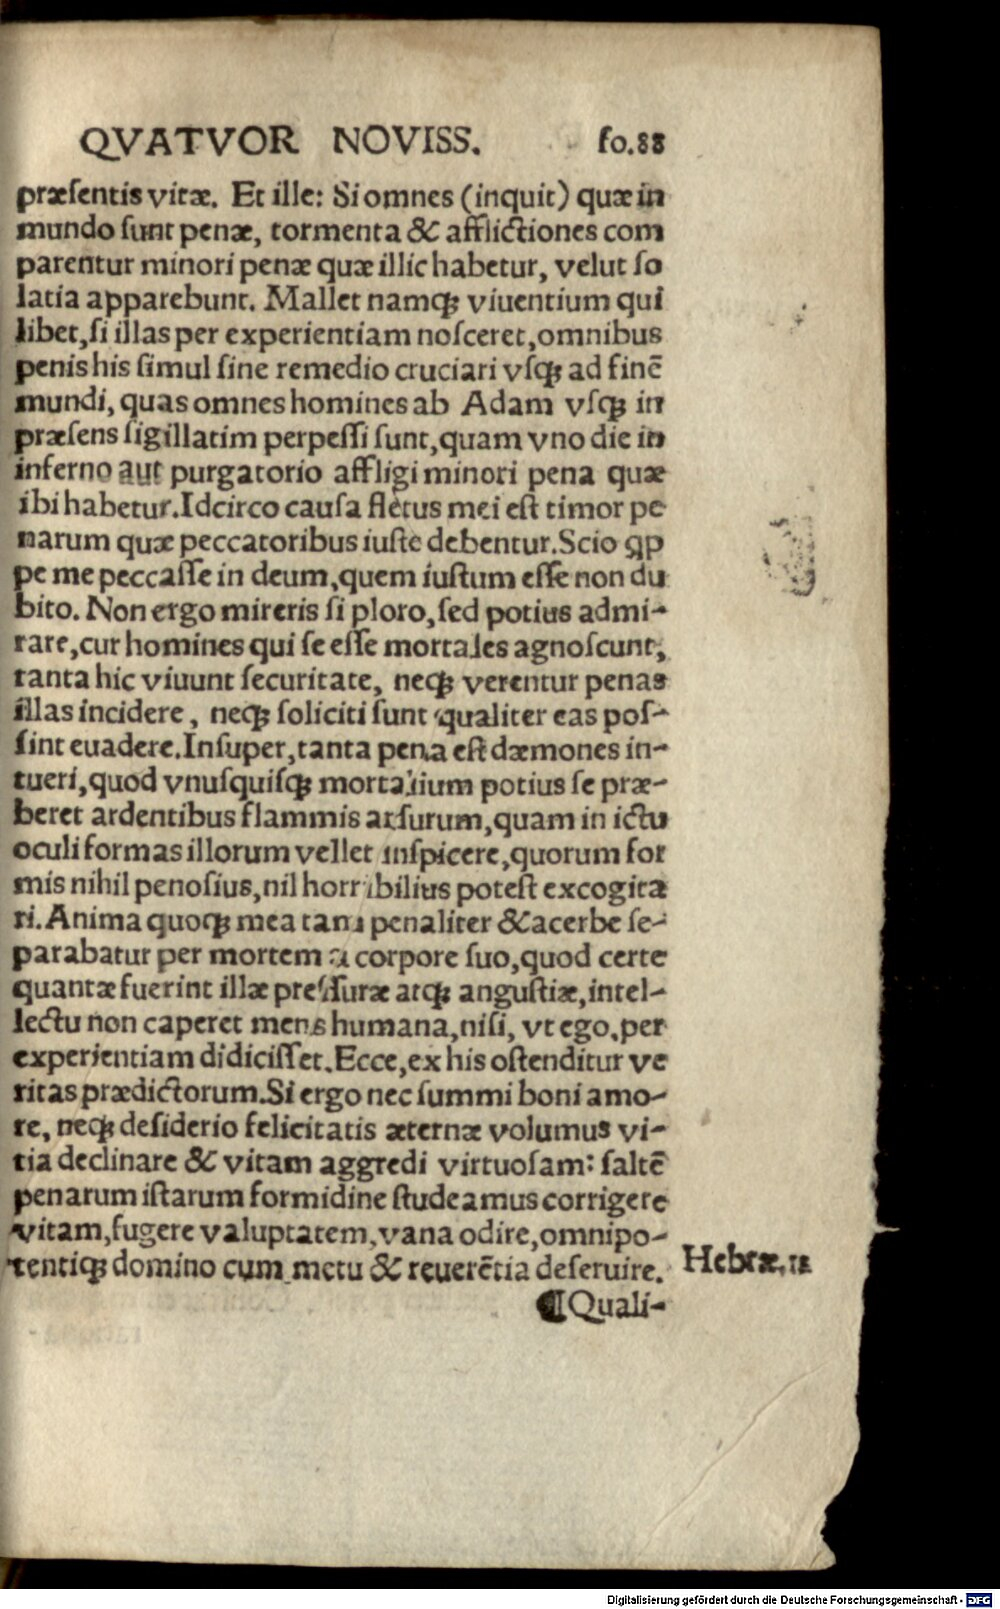 QVATVOR NOVISS. fo.88
præsentis vitæ. Et ille: Si omnes (inquit) quæ in
mundo sunt penæ, tormenta & afflictiones com
parentur minori penæ quæ illic habetur, velut so
latia apparebunt. Mallet namqꝫ viuentium qui
libet, si illas per experientiam nosceret, omnibus
penis his simul sine remedio cruciari vsqꝫ ad finē
mundi, quas omnes homines ab Adam vsqꝫ in
præsens sigillatim perpessi sunt, quam vno die in
inferno aut purgatorio affligi minori pena quæ
ibi habetur. Idcirco causa fletus mei est timor pe
narum quæ peccatoribus iuste debentur. Scio qꝓ
pe me peccasse in deum, quem iustum esse non du
bito. Non ergo mireris si ploro, sed potius admi-
rare, cur homines qui se esse mortales agnoscunt,
tanta hic viuunt securitate, neqꝫ verentur penas
illas incidere, neqꝫ soliciti sunt qualiter eas pos-
sint euadere. Insuper, tanta pena est dæmones in-
tueri, quod vnusquisqꝫ mortalium potius se præ-
beret ardentibus flammis arsurum, quam in ictu
oculi formas illorum vellet inspicere, quorum for
mis nihil penosius, nil horribilius potest excogita
ri. Anima quoqꝫ mea tam penaliter & acerbe se-
parabatur per mortem a corpore suo, quod certe
quantæ fuerint illæ pressuræ atqꝫ angustiæ, intel-
lectu non caperet mens humana, nisi, vt ego, per
experientiam didicisset. Ecce, ex his ostenditur ve
ritas prædictorum. Si ergo nec summi boni amo-
re, neqꝫ desiderio felicitatis æternæ volumus vi-
tia declinare & vitam aggredi virtuosam: saltē
penarum istarum formidine studeamus corrigere
vitam, fugere valuptatem, vana odire, omnipo-
tentiqꝫ domino cum metu & reuerētia deseruire. Hebræ. 12
¶ Quali-
Digitalisierung gefördert durch die Deutsche Forschungsgemeinschaft - DFG